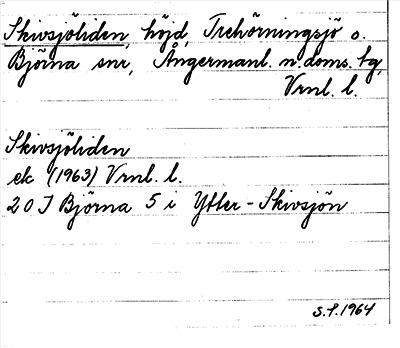 Skivsjöliden, höjd, Trehörningsjö o.
Björna snr, Ångermanl. n. doms. tg,
Vrnl. l.
Skivsjöliden
ek (1963) Vrnl. l.
20 J Björna 5 i Ytter-Skivsjön
S.F. 1964